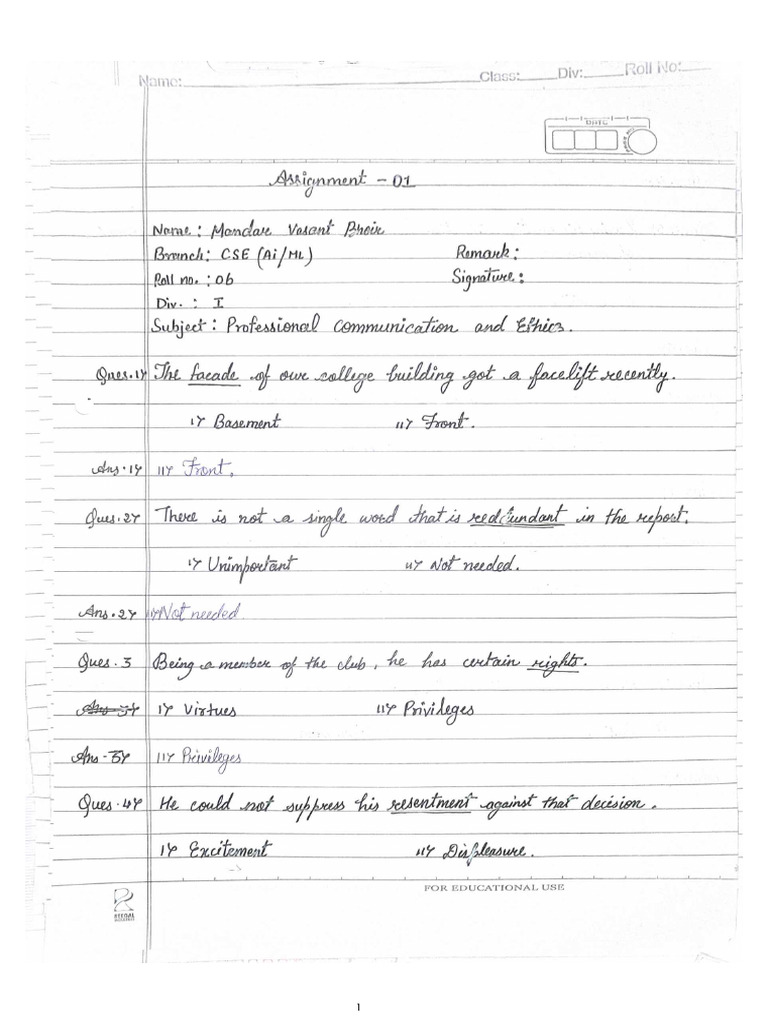 Name: Class: Div: Roll No:
DATE
Assignment - 01
Name: Mandar Vasant Bhoir
Branch: CSE (Ai/ML) Remark:
Roll no.: 06 Signature:
Div. : I
Subject: Professional communication and Ethics.
Ques.1) The facade of our college building got a facelift recently.
i) Basement ii) Front.
Ans.1) ii) Front.
Ques.2) There is not a single word that is redundant in the report.
i) Unimportant ii) Not needed.
Ans.2) ii) Not needed
Ques. 3 Being a member of the club, he has certain rights.
Ans-3) i) Virtues ii) Privileges
Ans-3) ii) Privileges
Ques.4) He could not suppress his resentment against that decision.
i) Excitement ii) Displeasure.
FOR EDUCATIONAL USE
1